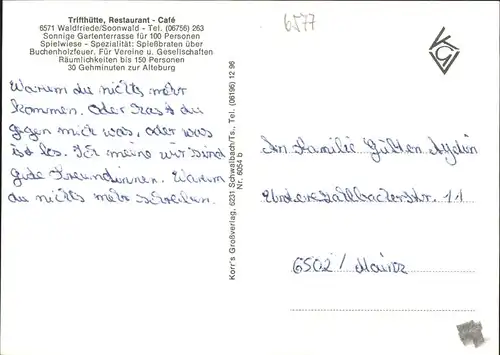 Trifthütte, Restaurant - Café
6571 Waldfriede/Soonwald - Tel. (06756) 263
Sonnige Gartenterrasse für 100 Personen
Spielwiese - Spezialität: Spießbraten über
Buchenholzfeuer. Für Vereine u. Gesellschaften
Räumlichkeiten bis 150 Personen
30 Gehminuten zur Alteburg
6577
Warum du nichts mehr
kommen. Oder hast du
gegen mich was, oder was
ist los. Ich meine wir sind
gute Freundinnen. Warum
du nichts mehr schreiben.
Korr's Großverlag, 6231 Schwalbach/Ts., Tel. (06196) 12 96
Nr. 6054 b
An Familie Gülten Aydin
11
6502 / Mainz